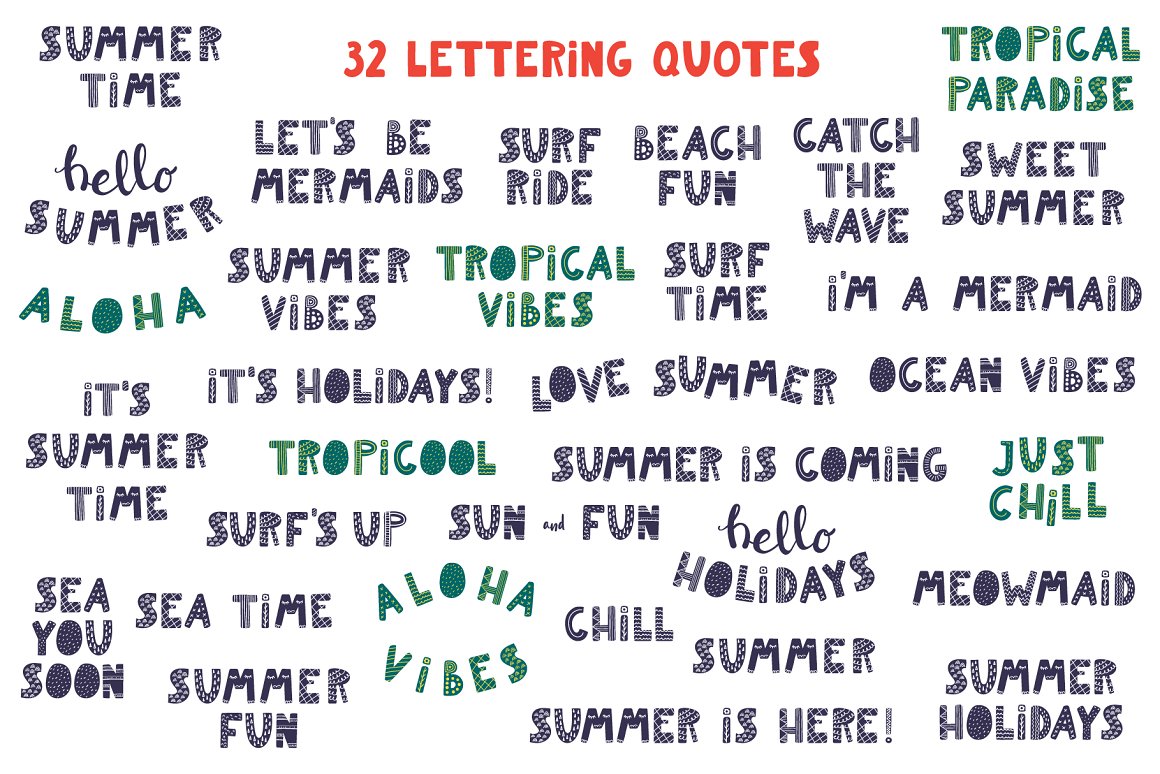 SUMMER
TiME
32 LETTERiNG QUOTES
TROPiCAL
PARADiSE
hello
SUMMER
LET'S BE
MERMAiDS
SURF
RiDE
BEACH
FUN
CATCH
THE
WAVE
SWEET
SUMMER
ALOHA
SUMMER
ViBES
TROPiCAL
ViBES
SURF
TiME
i'M A MERMAiD
iT'S
SUMMER
TiME
iT'S HOLiDAYS!
LOVE SUMMER
OCEAN ViBES
TROPiCOOL
SUMMER iS COMiNG
JUST
CHiLL
SURF'S UP
SUN and FUN
hello
HOLiDAYS
SEA
YOU
SOON
SEA TiME
ALOHA
ViBES
CHiLL
MEOWMAiD
SUMMER
FUN
SUMMER
SUMMER iS HERE!
SUMMER
HOLiDAYS